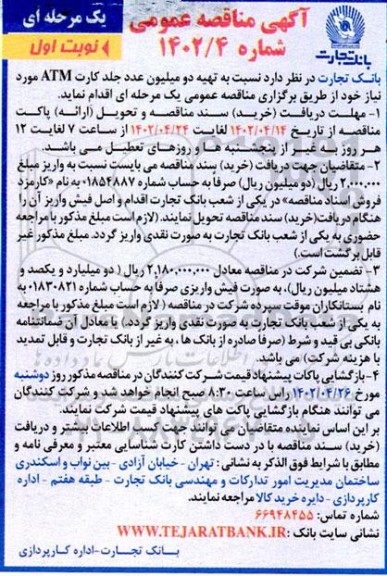 آگهی مناقصه عمومی
شماره ۱۴۰۲/۴
یک مرحله ای
نوبت اول
بانک تجارت
بانک تجارت در نظر دارد نسبت به تهیه دو میلیون عدد جلد کارت ATM مورد
نیاز خود از طریق برگزاری مناقصه عمومی یک مرحله ای اقدام نماید.
۱- مهلت دریافت (خرید) سند مناقصه و تحویل (ارائه) پاکت
مناقصه از تاریخ ۱۴۰۲/۰۴/۱۴ لغایت ۱۴۰۲/۰۴/۲۴ از ساعت ۷ لغایت ۱۲
هر روز به غیر از پنجشنبه ها و روزهای تعطیل می باشد.
۲- متقاضیان جهت دریافت (خرید) سند مناقصه می بایست نسبت به واریز مبلغ
۲,۰۰۰,۰۰۰ ریال (دو میلیون ریال) صرفا به حساب شماره ۰۱۸۵۴۸۸۷ به نام «کارمزد
فروش اسناد مناقصه» در یکی از شعب بانک تجارت اقدام و اصل فیش واریز آن را
هنگام دریافت(خرید) سند مناقصه تحویل نمایند. (لازم است مبلغ مذکور با مراجعه
حضوری به یکی از شعب بانک تجارت به صورت نقدی واریز گردد. مبلغ مذکور غیر
قابل برگشت است.)
۳- تضمین شرکت در مناقصه معادل ۲,۱۸۰,۰۰۰,۰۰۰ ریال ( دو میلیارد و یکصد و
هشتاد میلیون ریال)، به صورت فیش واریزی صرفا به حساب شماره ۰۱۸۳۰۸۲۱ به
نام بستانکاران موقت سپرده شرکت در مناقصه ( لازم است مبلغ مذکور با مراجعه
به یکی از شعب بانک تجارت به صورت نقدی واریز گردد.) یا معادل آن ضمانتنامه
بانکی بی قید و شرط (صرفا صادره از بانک ها ، به غیر از بانک تجارت و قابل تمدید
با هزینه شرکت) می باشد.
۴- بازگشایی پاکات پیشنهاد قیمت شرکت کنندگان در مناقصه مذکور روز دوشنبه
مورخ ۱۴۰۲/۰۴/۲۶ راس ساعت ۸:۳۰ صبح انجام خواهد شد و شرکت کنندگان
می توانند هنگام بازگشایی پاکت های پیشنهاد قیمت شرکت نمایند.
بر این اساس نماینده متقاضیان می توانند جهت کسب اطلاعات بیشتر و دریافت
(خرید) سند مناقصه با در دست داشتن کارت شناسایی معتبر و معرفی نامه و
مطابق با شرایط فوق الذکر به نشانی : تهران - خیابان آزادی - بین نواب و اسکندری
ساختمان مدیریت امور تدارکات و مهندسی بانک تجارت - طبقه هفتم - اداره
کارپردازی - دایره خرید کالا مراجعه نمایند.
شماره تماس: ۶۶۹۴۸۴۵۵
نشانی سایت بانک: WWW.TEJARATBANK.IR
بانک تجارت-اداره کارپردازی